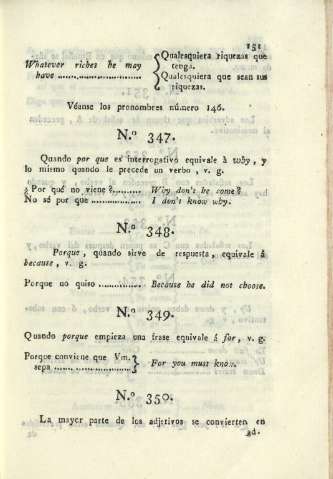 151
Whatever riches he may have ........................ { Qualesquiera riquezas que tenga.
Qualesquiera que sean sus riquezas.
Véanse los pronombres número 146.
N.º 347.
Quando por que es interrogativo equivale à why, y
lo mismo quando le precede un verbo, v. g.
¿Por qué no viene?......... Why don't he come?
No sé por que ............... I don't know why.
N.º 348.
Porque, quando sirve de respuesta, equivale á
because, v. g.
Porque no quiso ............... Because he did not choose.
N.º 349.
Quando porque empieza una frase equivale á for, v. g.
Porque conviene que Vm. sepa ........................ } For you must know.
N.º 350.
La mayor parte de los adjetivos se convierten en
ad.